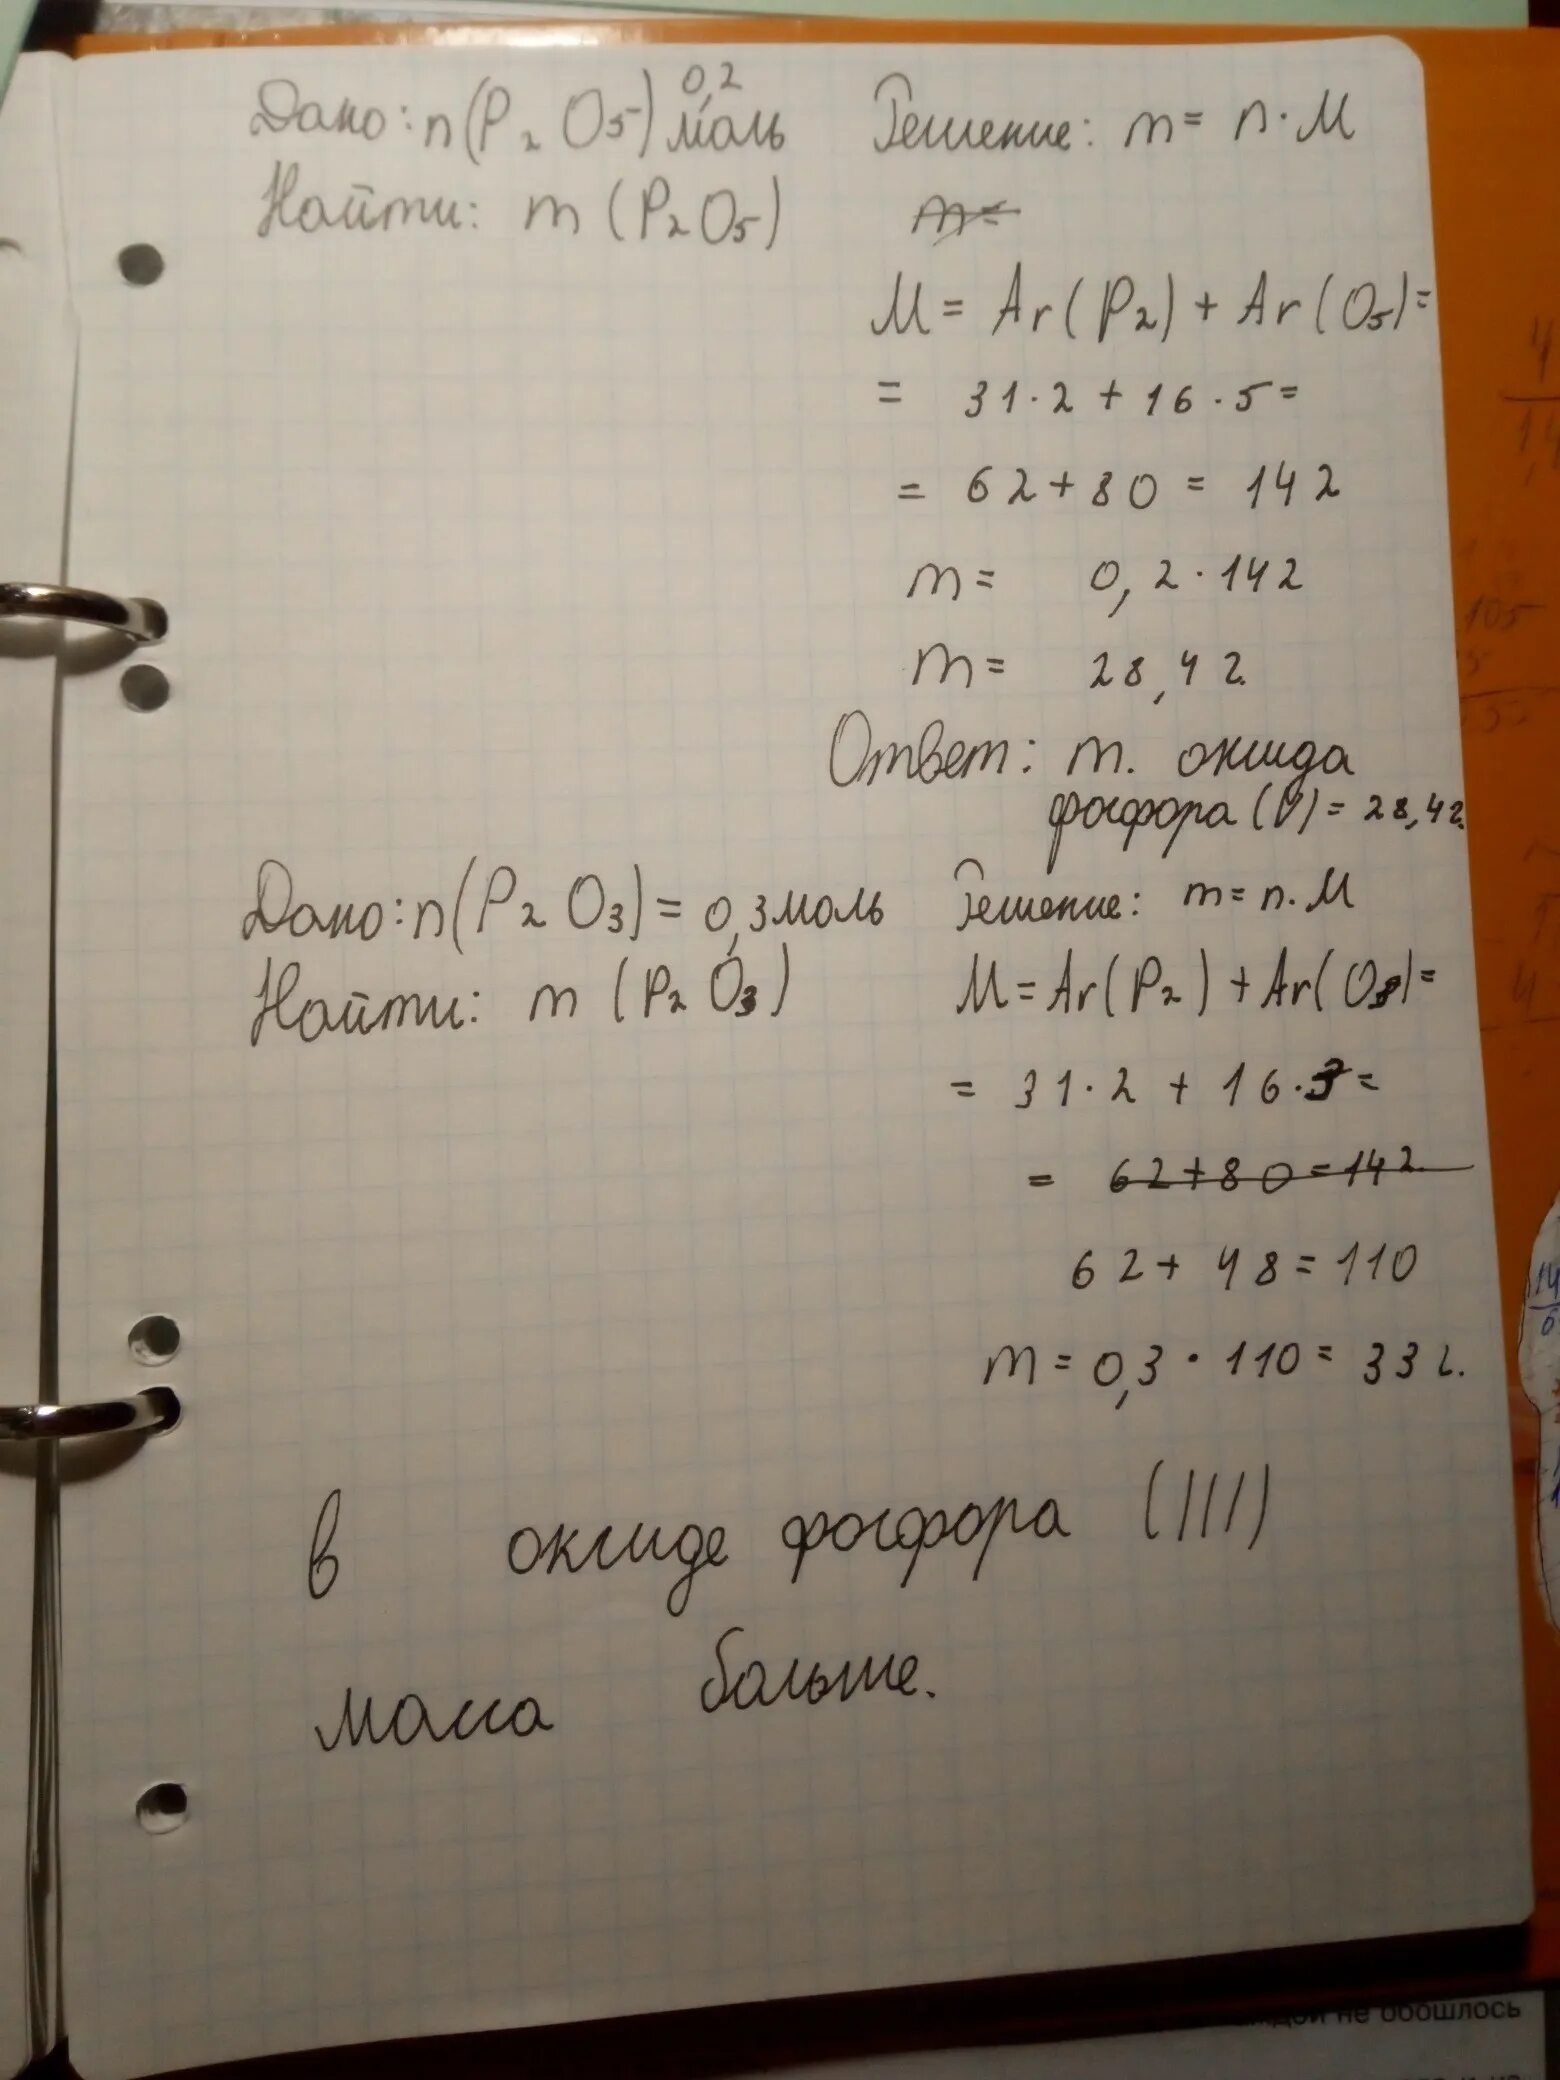 Дано: n(P2O5) 0,2 моль
Найти: m (P2O5)
Решение: m = n · M
m =
M = Ar(P2) + Ar(O5) =
= 31 · 2 + 16 · 5 =
= 62 + 80 = 142
m = 0,2 · 142
m = 28,4 г.
Ответ: m. оксида
фосфора (V) = 28,4 г.
Дано: n(P2O3) = 0,3 моль
Найти: m (P2O3)
Решение: m = n · M
M = Ar(P2) + Ar(O3) =
= 31 · 2 + 16 · 3 =
= 62 + 80 = 142
62 + 48 = 110
m = 0,3 · 110 = 33 г.
В оксиде фосфора (III)
масса больше.
не обошлось